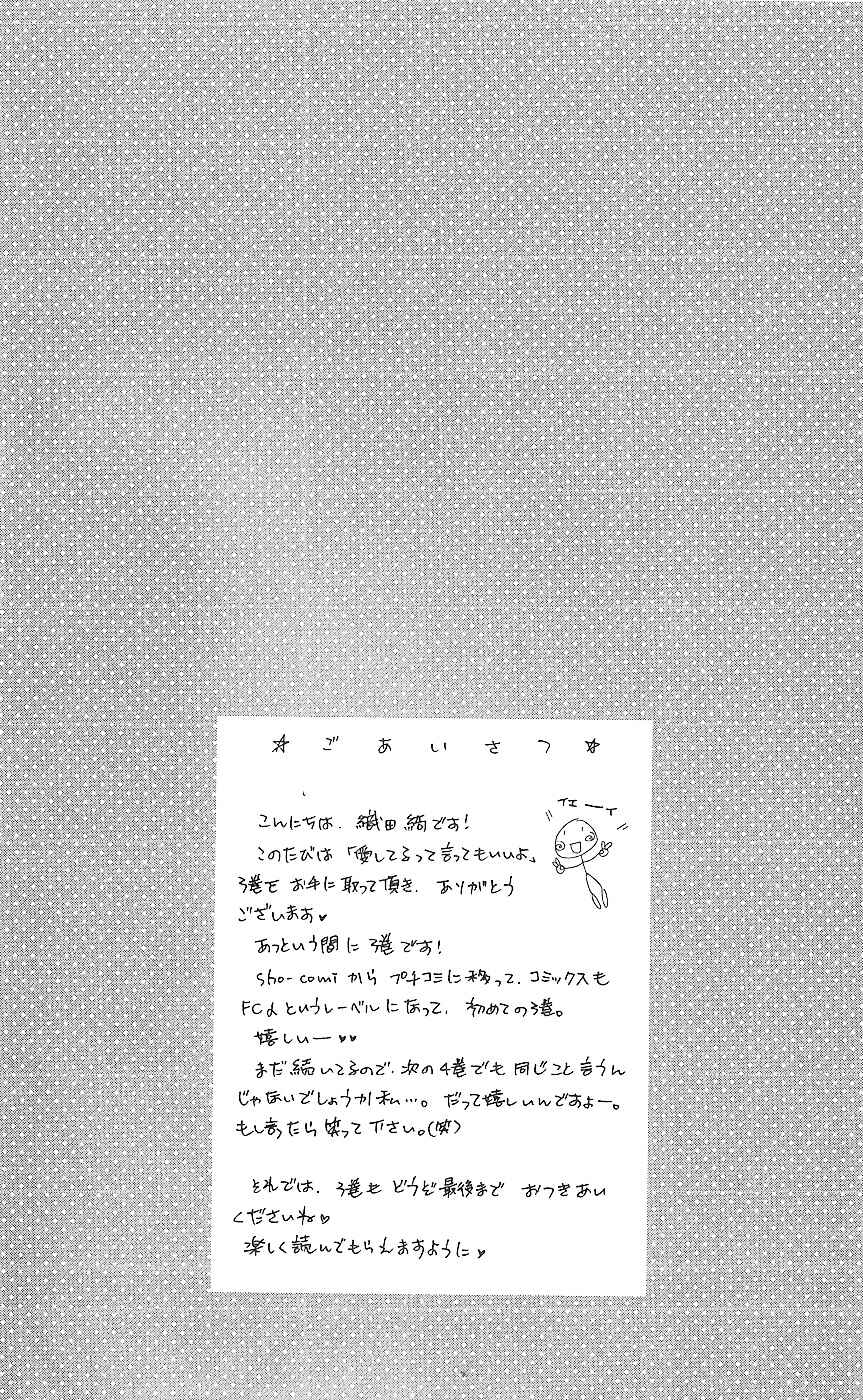 ☆ ごあいさつ ☆
イエーイ
こんにちは、織田綺です!
このたびは「愛してるって言ってもいいよ」
3巻を お手に取って頂き、ありがとう
ございます♥
あっという間に 3巻です!
Sho-comiから プチコミに移って、コミックスも
FCαというレーベルになって、初めての3巻。
嬉しぃー♥♥
まだ続いてるので、次の4巻でも 同じこと言うん
じゃないでしょうか私…。だって嬉しいんですよー。
もし言ったら笑って下さい。(笑)
それでは、3巻を どうぞ最後まで おつきあい
くださいね♥
楽しく読んでもらえますように♥